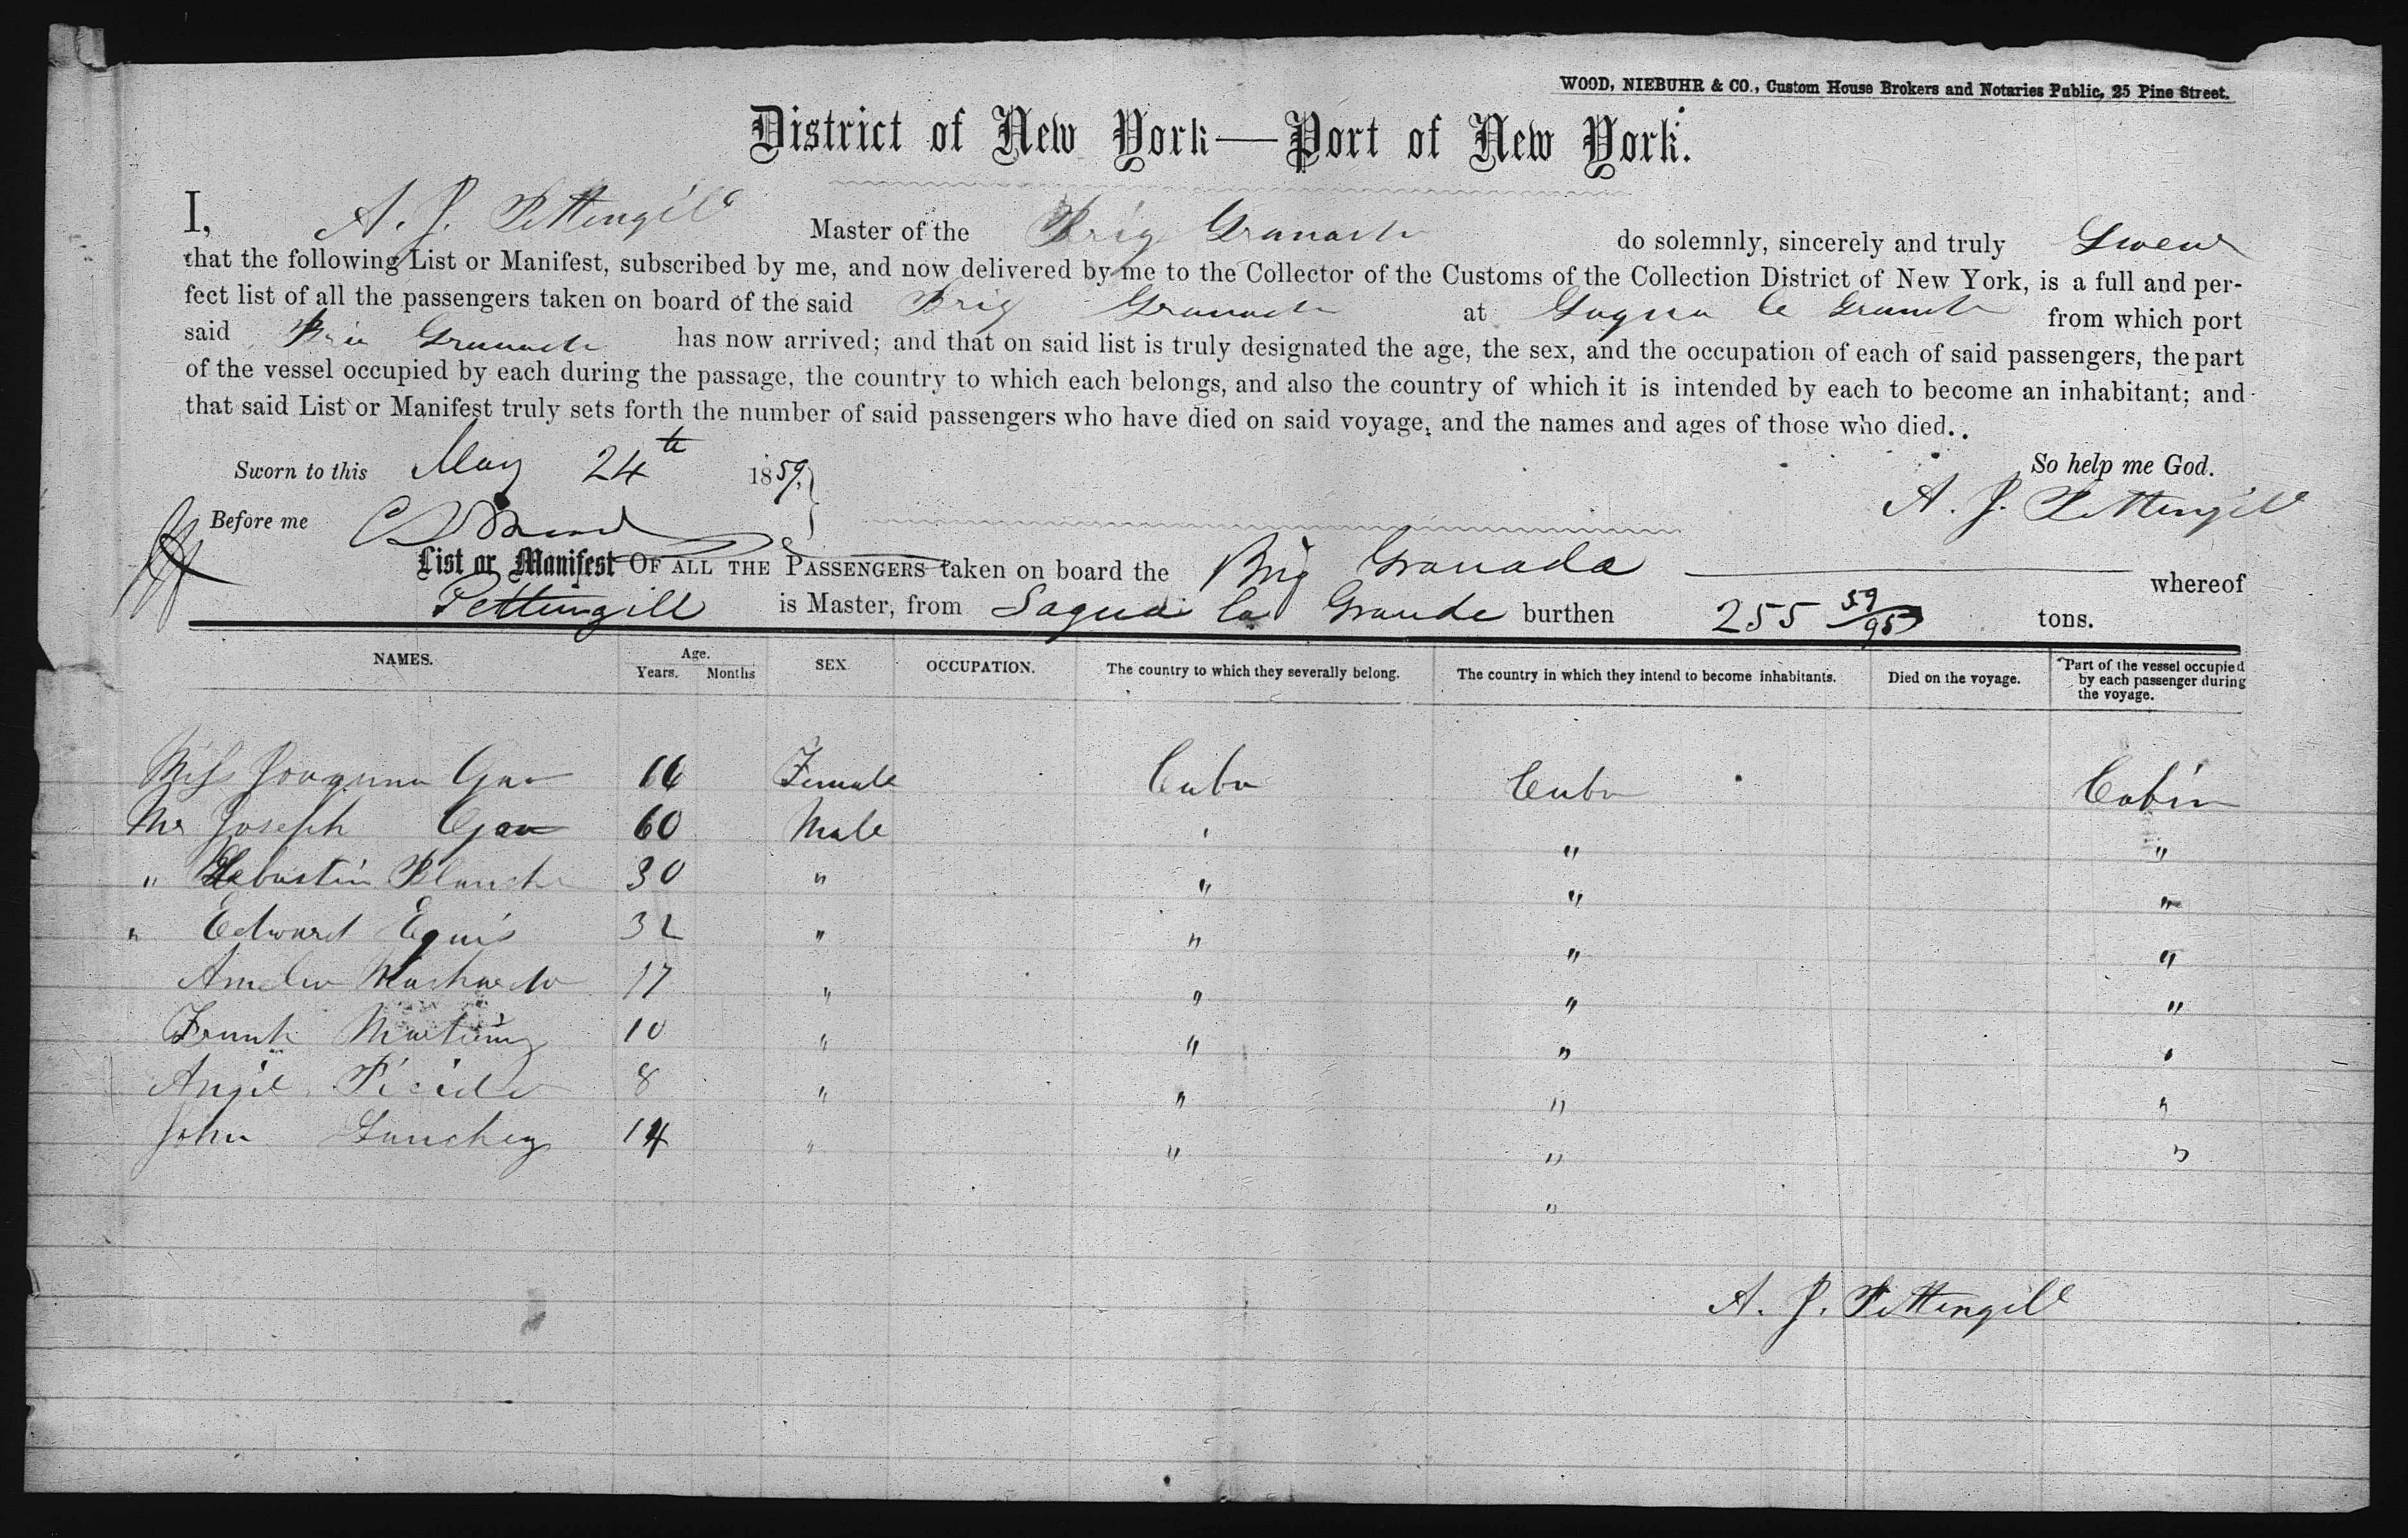 WOOD, NIEBUHR & CO., Custom House Brokers and Notaries Public, 25 Pine Street.
District of New York—Port of New York.
I, A. J. Pettengill Master of the Brig Granada do solemnly, sincerely and truly Swear
that the following List or Manifest, subscribed by me, and now delivered by me to the Collector of the Customs of the Collection District of New York, is a full and per-
fect list of all the passengers taken on board of the said Brig Granada at Sagua la Grande from which port
said Brig Granada has now arrived; and that on said list is truly designated the age, the sex, and the occupation of each of said passengers, the part
of the vessel occupied by each during the passage, the country to which each belongs, and also the country of which it is intended by each to become an inhabitant; and
that said List or Manifest truly sets forth the number of said passengers who have died on said voyage, and the names and ages of those who died.
Sworn to this May 24th 1859. So help me God.
Before me A. J. Pettengill
List or Manifest OF ALL THE PASSENGERS taken on board the Brig Granada whereof
Pettingill is Master, from Sagua la Grande burthen 255 59/95 tons.
NAMES. Age. Years. Months SEX OCCUPATION. The country to which they severally belong. The country in which they intend to become inhabitants. Died on the voyage. Part of the vessel occupied by each passenger during the voyage.
Miss 16 Female Cuba Cuba Cabin
Mr Joseph 60 Male " " "
" Sebastin Blanch 30 " " " "
" Edward Equis 32 " " " "
Amelio Machado 17 " " " "
Frank Martinz 10 " " " "
Angil 8 " " " "
John Sanchez 14 " " " "
"
A. J. Pettengill